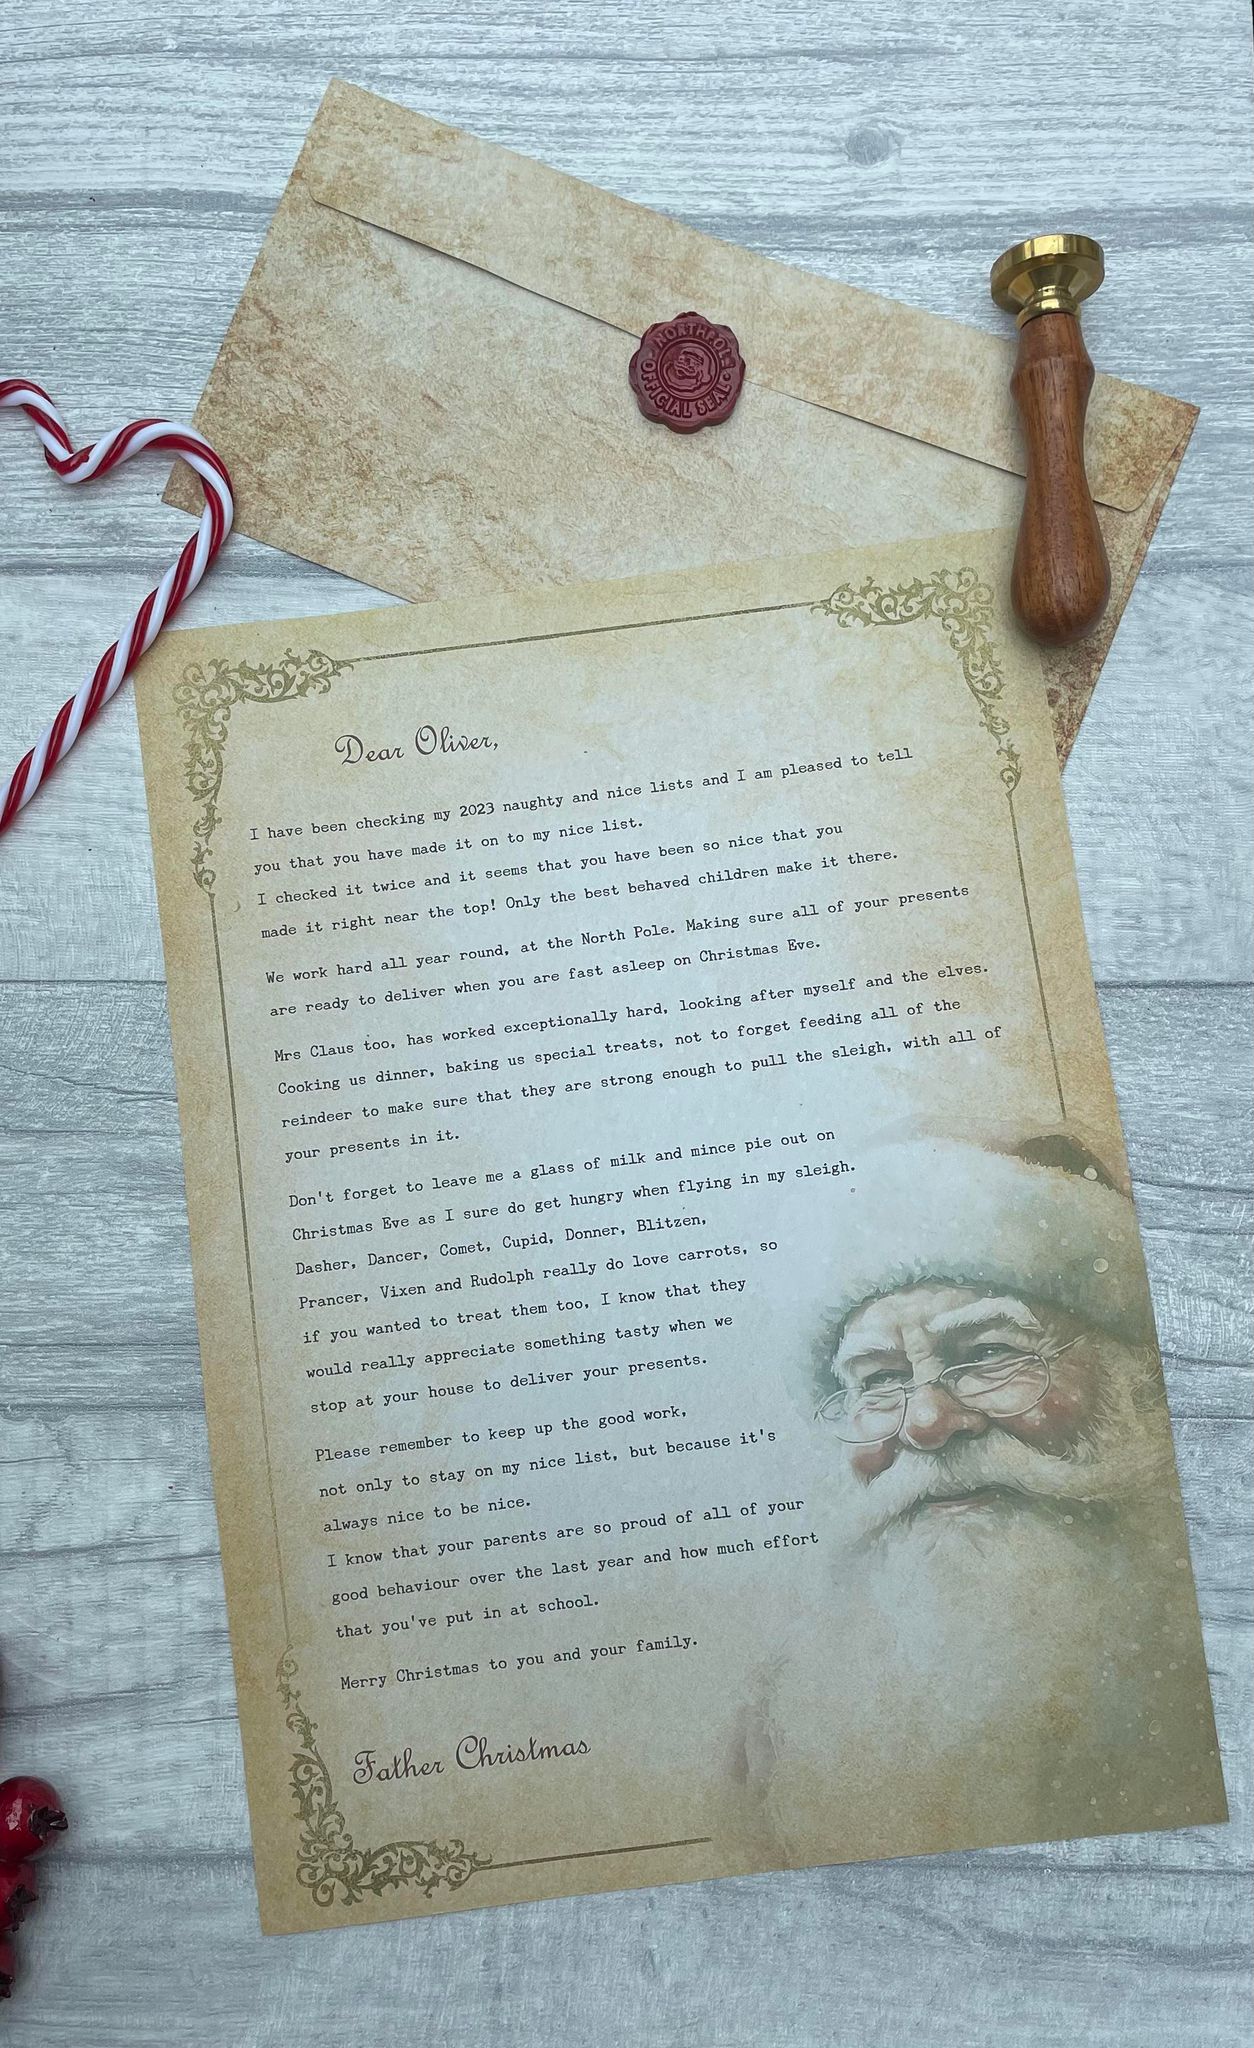 NORTHPOLE
OFFICIAL SEAL
Dear Oliver,
I have been checking my 2023 naughty and nice lists and I am pleased to tell
you that you have made it on to my nice list.
I checked it twice and it seems that you have been so nice that you
made it right near the top! Only the best behaved children make it there.
We work hard all year round, at the North Pole. Making sure all of your presents
are ready to deliver when you are fast asleep on Christmas Eve.
Mrs Claus too, has worked exceptionally hard, looking after myself and the elves.
Cooking us dinner, baking us special treats, not to forget feeding all of the
reindeer to make sure that they are strong enough to pull the sleigh, with all of
your presents in it.
Don't forget to leave me a glass of milk and mince pie out on
Christmas Eve as I sure do get hungry when flying in my sleigh.
Dasher, Dancer, Comet, Cupid, Donner, Blitzen,
Prancer, Vixen and Rudolph really do love carrots, so
if you wanted to treat them too, I know that they
would really appreciate something tasty when we
stop at your house to deliver your presents.
Please remember to keep up the good work,
not only to stay on my nice list, but because it's
always nice to be nice.
I know that your parents are so proud of all of your
good behaviour over the last year and how much effort
that you've put in at school.
Merry Christmas to you and your family.
Father Christmas